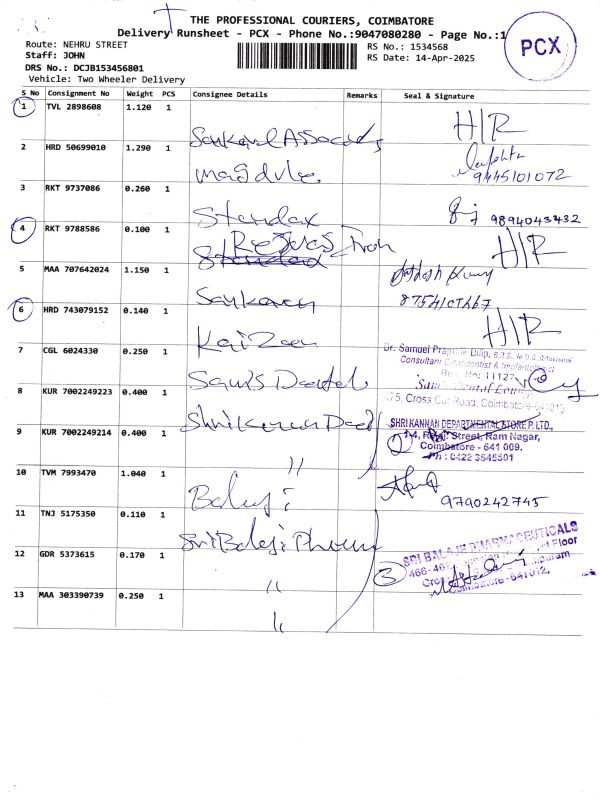 THE PROFESSIONAL COURIERS, COIMBATORE
Delivery Runsheet - PCX - Phone No.:9047080280 - Page No.:1
PCX
Route: NEHRU STREET
Staff: JOHN
DRS No.: DCJB153456801
Vehicle: Two Wheeler Delivery
RS No.: 1534568
RS Date: 14-Apr-2025
S No Consignment No Weight PCS Consignee Details Remarks Seal & Signature
1 TVL 2898608 1.120 1 H/R
2 HRD 50699010 1.290 1 9445101072
3 RKT 9737086 0.260 1 Standax 9894043432
4 RKT 9788586 0.100 1 H/R
5 MAA 707642024 1.150 1
6 HRD 743079152 0.140 1 Kaizen H/R
7 CGL 6024330 0.250 1 Sam's Dental
Dr. Samuel Dilip, B.D.S.,
Consultant & Implantologist
Reg. No: 11127
Sam's Dental Lounge
Cross Cut Road, Coimbatore-641012
8 KUR 7002249223 0.400 1
9 KUR 7002249214 0.400 1 "
SHRI KANNAN DEPARTMENTAL STORE P. LTD.,
Street, Ram Nagar,
Coimbatore - 641 009.
Ph : 0422 3545501
2
10 TVM 7993470 1.040 1 Balaji 9790242745
11 TNJ 5175350 0.110 1 Sri Balaji Pharma
12 GDR 5373615 0.170 1 "
SRI BALAJI PHARMACEUTICALS
Floor
Coimbatore-641012.
3
13 MAA 303390739 0.250 1 "